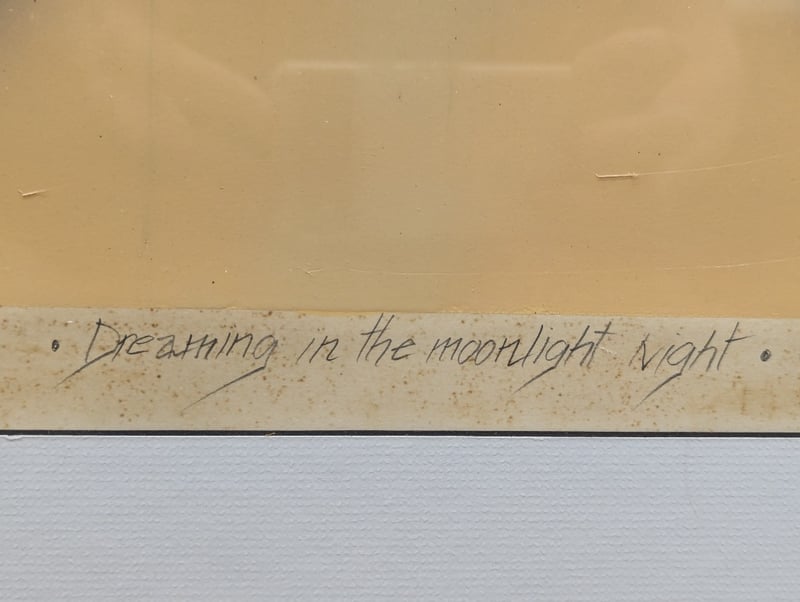 • Dreaming in the moonlight Night •